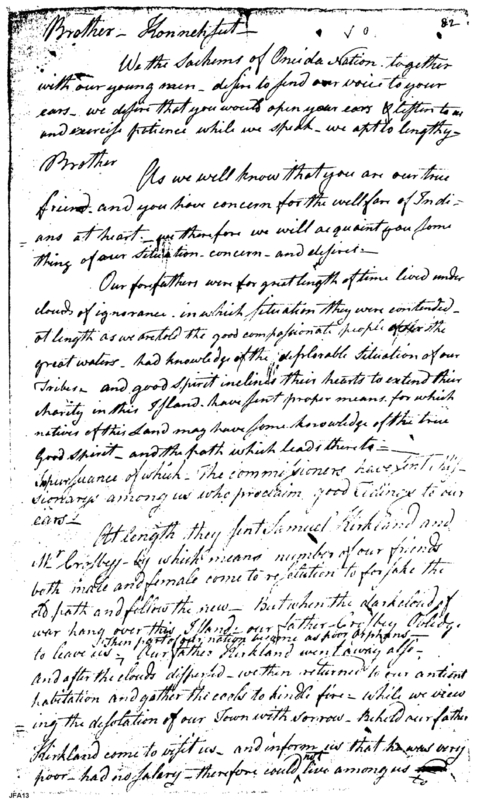 82
Brother – Konnehfut –
We the Sachems of Oneida Nation together
with our young men – desire to send our voice to your
ears – we desire that you would open your ears & listen to us
and exercise patience while we speak – we apt to lengthy –
Brother
As we well know that you are our true
friend – and you have concern for the wellfare of Indi-
ans at heart – we therefore we will acquaint you some
thing of our Situation – concern – and desires –
Our forefathers were for great length of time lived under
clouds of ignorance – in which situation they were contended –
at length as we are told the good compassionate people over the
great waters – had knowledge of the deplorable Situation of our
Tribes – and good Spirit inclined their hearts to extend their
charity in this Island – have sent proper means for which
natives of this Land may have some knowledge of the true
Good Spirit – and the path which leads thereto –
In pursuance of which – The commissioners have sent Mis-
sionarys among us who proclaim good tidings to our
ears –
At length they sent Samuel Kirkland and
Mr Crosbey – by which means number of our friends
both male and female come to resolution to forsake the
old path and follow the new – But when the dark cloud of
war hang over this Island – our father Crosbey
Then part of our nation become as poor orphans –
to leave us – Our father Kirkland went away also –
and after the clouds dispersed – we then returned to our antient
habitation and gather the coals to kindle fire – while we view
ing the desolation of our Town with sorrow – Behold our father
Kirkland come to visit us – and inform us that he was very
poor – had no salary – therefore could not live among us
to
JFA13